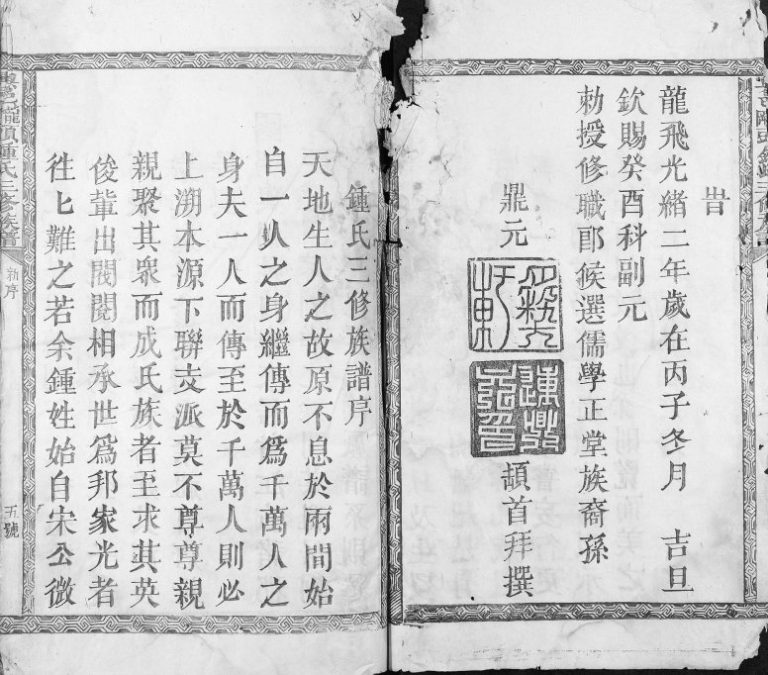 旹
龍飛光緒二年歲在丙子冬月　吉旦
欽賜癸酉科副元
勅授修職郎候選儒學正堂族裔孫
鼎元
頓首拜撰
鍾氏三修族譜序
天地生人之故原不息於兩間始
自一人之身繼傳而為千萬人之
身夫一人而傳至於千萬人則必
上溯本源下聯支派莫不尊尊親
親聚其眾而成氏族者至求其英
俊輩出閥閱相承世為邦家光者
往匕難之若余鍾姓始自宋公微
鍾氏三修族譜
新序
五號